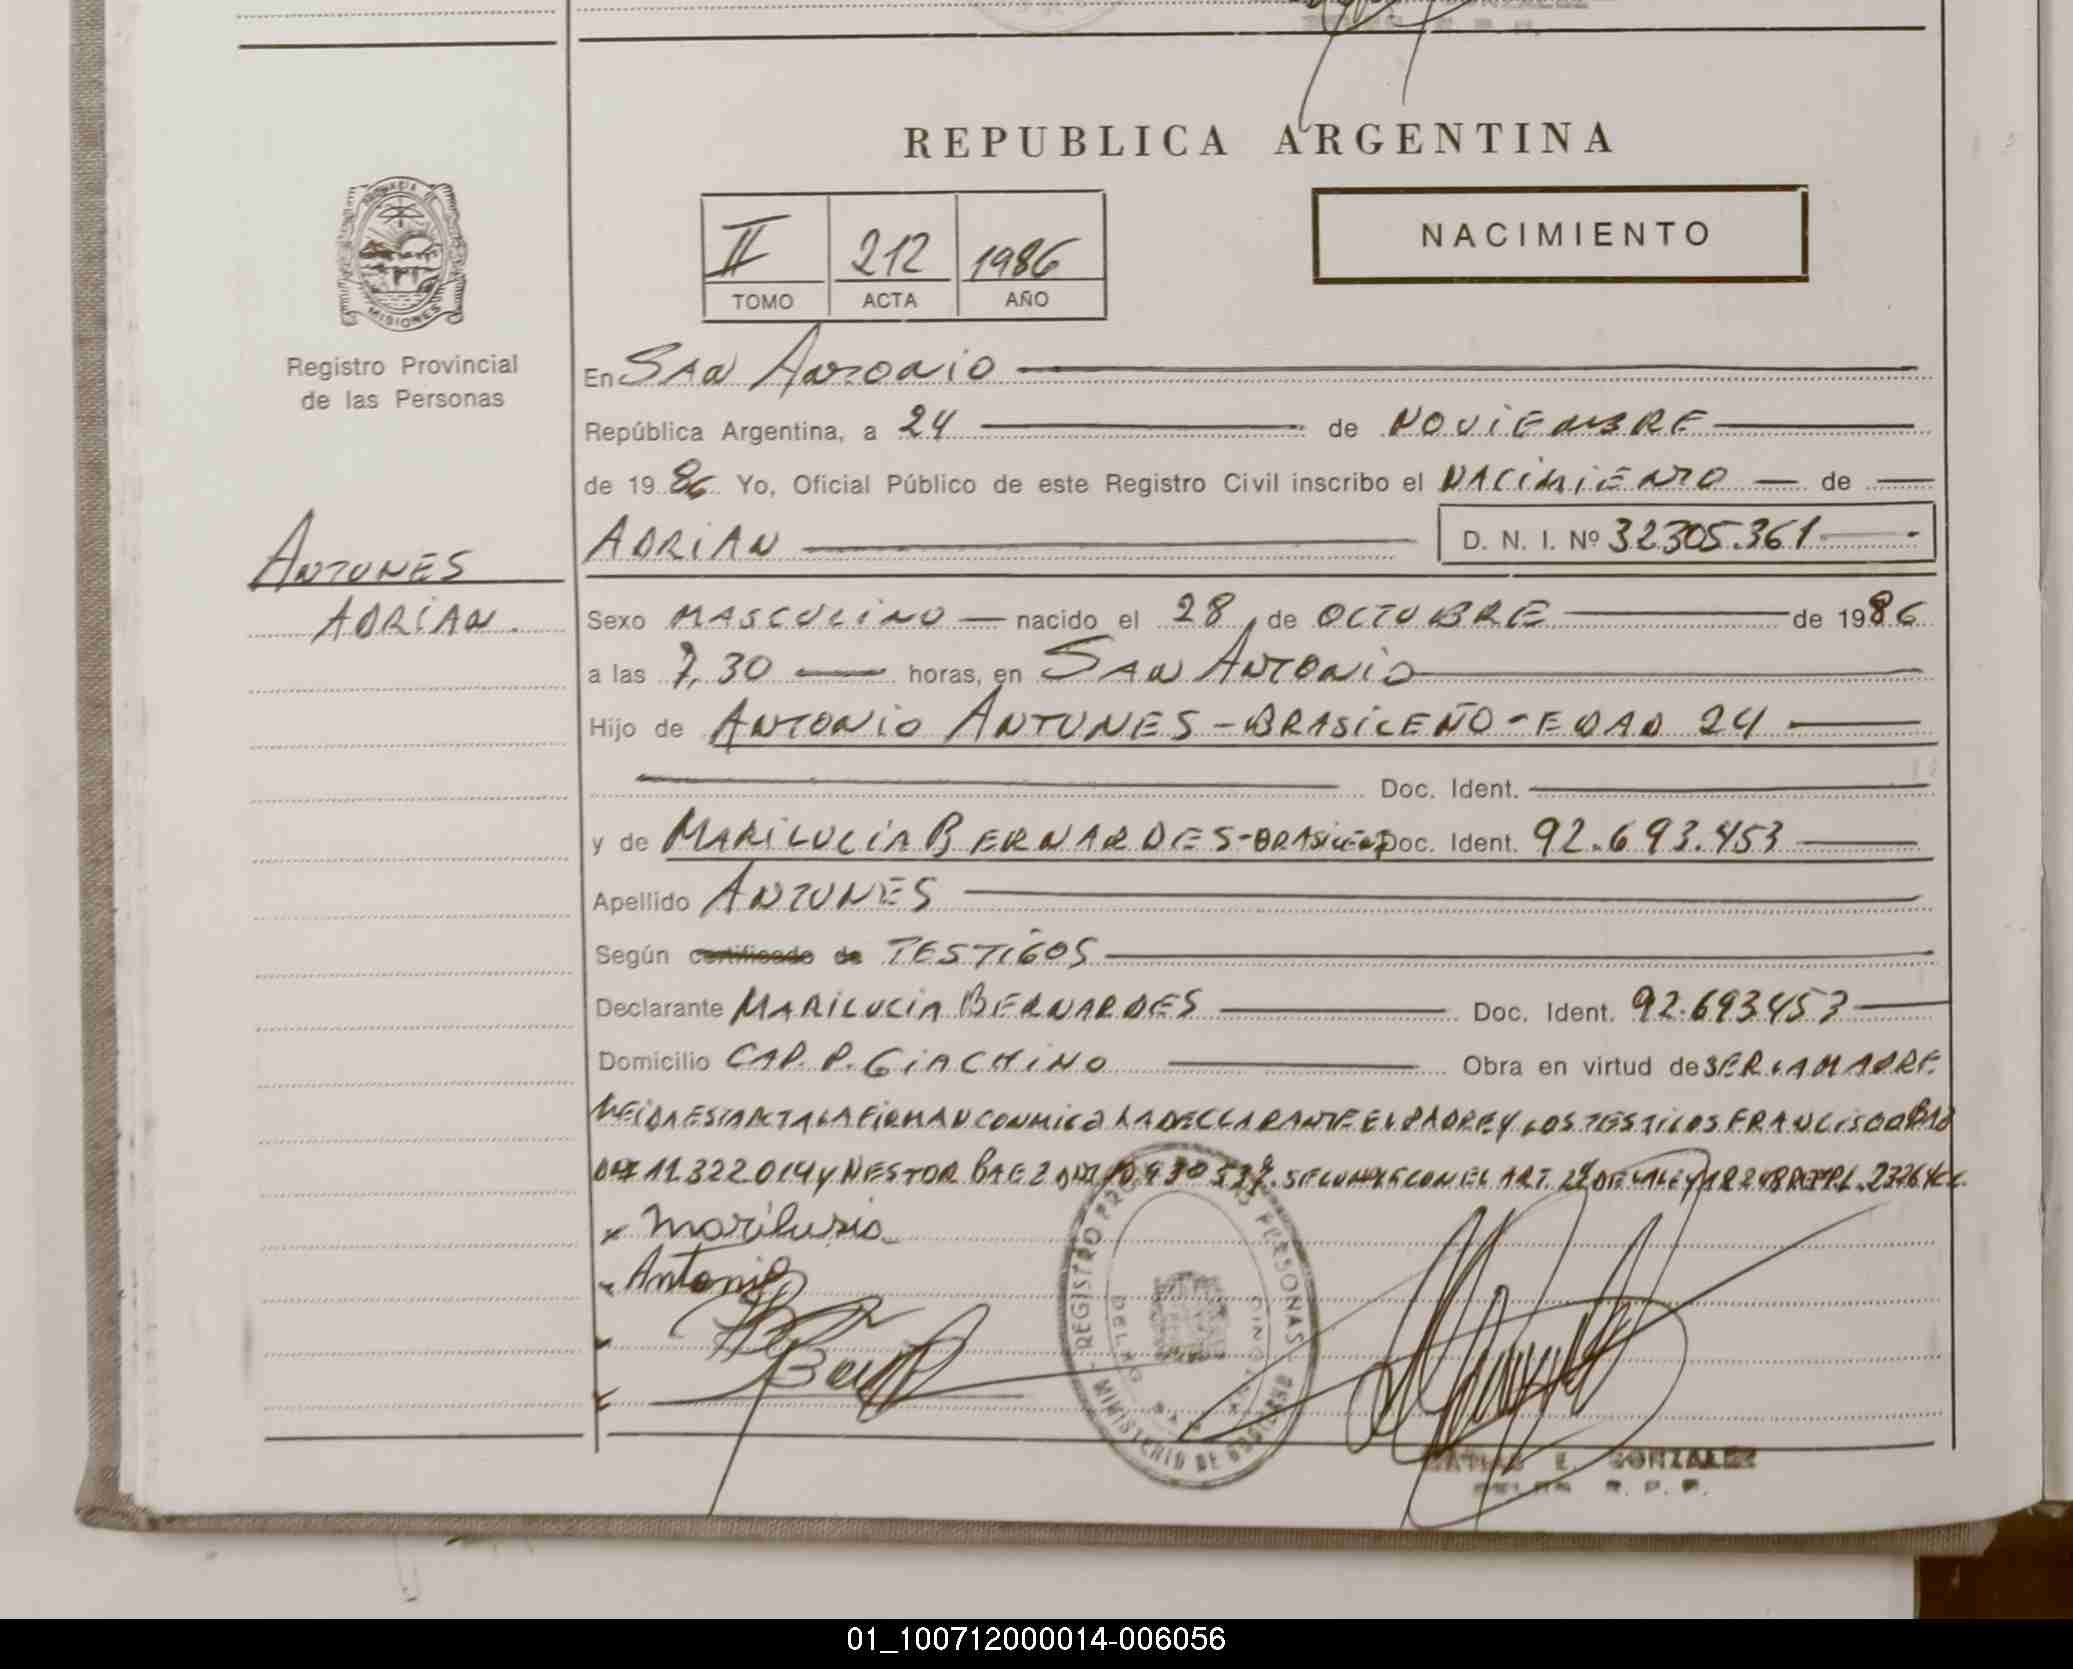 REPUBLICA ARGENTINA
NACIMIENTO
II 212 1986
TOMO ACTA AÑO
MISIONES
Registro Provincial
de las Personas
ANTUNES
ADRIAN
En SAN ANTONIO
República Argentina, a 24 de NOVIEMBRE
de 1986 Yo, Oficial Público de este Registro Civil inscribo el NACIMIENTO de
ADRIAN D. N. I. Nº 32305.361
Sexo MASCULINO nacido el 28 de OCTUBRE de 1986
a las 7,30 horas, en SAN ANTONIO
Hijo de ANTONIO ANTUNES - BRASILEÑO - EDAD 24
Doc. Ident.
y de MARILUCIA BERNARDES - BRASILEÑA Doc. Ident. 92.693.453
Apellido ANTUNES
Según certificado de TESTIGOS
Declarante MARILUCIA BERNARDES Doc. Ident. 92.693453
Domicilio CAP. P. GIACHINO Obra en virtud de SER LA MADRE
LEIDA ESTA ACTA LA FIRMAN CONMIGO LA DECLARANTE EL PADRE Y LOS TESTIGOS FRANCISCO
DNI 11.322.014 Y NESTOR BAEZ DNI CON EL ART. DE LA LEY
x Marilusia
Antonio
REGISTRO PERSONAS
MINISTERIO DE GOBIERNO
E. GONZALEZ
R. P. P.
01_100712000014-006056